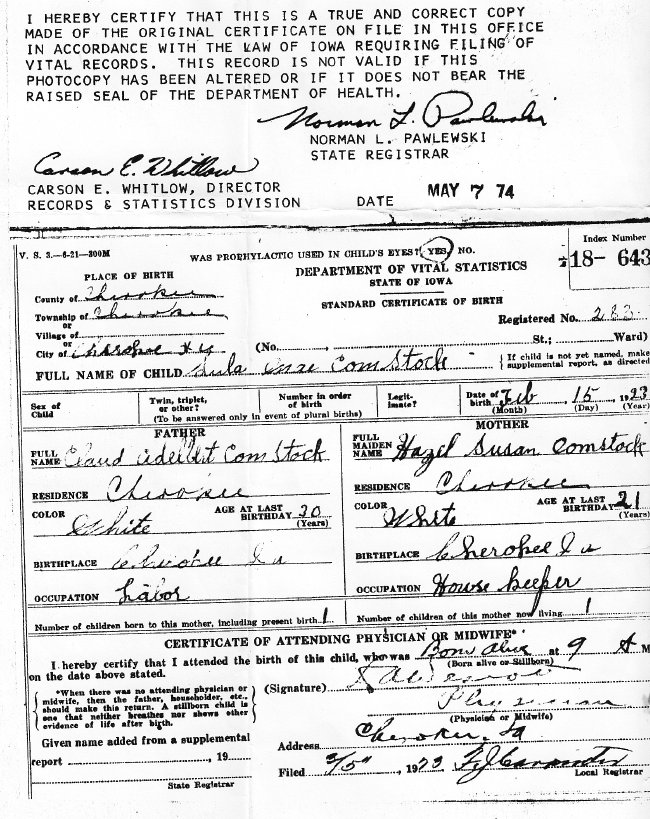 I HEREBY CERTIFY THAT THIS IS A TRUE AND CORRECT COPY
MADE OF THE ORIGINAL CERTIFICATE ON FILE IN THIS OFFICE
IN ACCORDANCE WITH THE LAW OF IOWA REQUIRING FILING OF
VITAL RECORDS. THIS RECORD IS NOT VALID IF THIS
PHOTOCOPY HAS BEEN ALTERED OR IF IT DOES NOT BEAR THE
RAISED SEAL OF THE DEPARTMENT OF HEALTH.
Norman L. Pawlewski
NORMAN L. PAWLEWSKI
STATE REGISTRAR
Carson E. Whitlow
CARSON E. WHITLOW, DIRECTOR
RECORDS & STATISTICS DIVISION DATE MAY 7 74
V. S. 3.—6-21—300M WAS PROPHYLACTIC USED IN CHILD'S EYES? YES, NO. Index Number
18- 643
PLACE OF BIRTH DEPARTMENT OF VITAL STATISTICS
STATE OF IOWA
County of Cherokee STANDARD CERTIFICATE OF BIRTH
Township of Cherokee Registered No. 283
or
Village of
or
City of Cherokee (No. , St.; Ward)
FULL NAME OF CHILD Comstock { If child is not yet named, make supplemental report, as directed
Sex of Child Twin, triplet, or other? Number in order of birth Legitimate? Date of birth Feb 15 1923
(To be answered only in event of plural births) (Month) (Day) (Year)
FATHER MOTHER
FULL NAME Claud Comstock FULL MAIDEN NAME Hazel Susan Comstock
RESIDENCE Cherokee RESIDENCE Cherokee
COLOR White AGE AT LAST BIRTHDAY (Years) COLOR White AGE AT LAST BIRTHDAY 21 (Years)
BIRTHPLACE Cherokee Ia BIRTHPLACE Cherokee Ia
OCCUPATION Labor OCCUPATION House keeper
Number of children born to this mother, including present birth 1 Number of children of this mother now living 1
CERTIFICATE OF ATTENDING PHYSICIAN OR MIDWIFE*
I hereby certify that I attended the birth of this child, who was Born alive at 9 A M
on the date above stated. (Born alive or Stillborn)
{ *When there was no attending physician or
midwife, then the father, householder, etc.,
should make this return. A stillborn child is
one that neither breathes nor shows other
evidence of life after birth. }
(Signature)
Physician
(Physician or Midwife)
Given name added from a supplemental
report , 19 Address Cherokee, Ia
State Registrar Filed 3/5 , 1923 Local Registrar